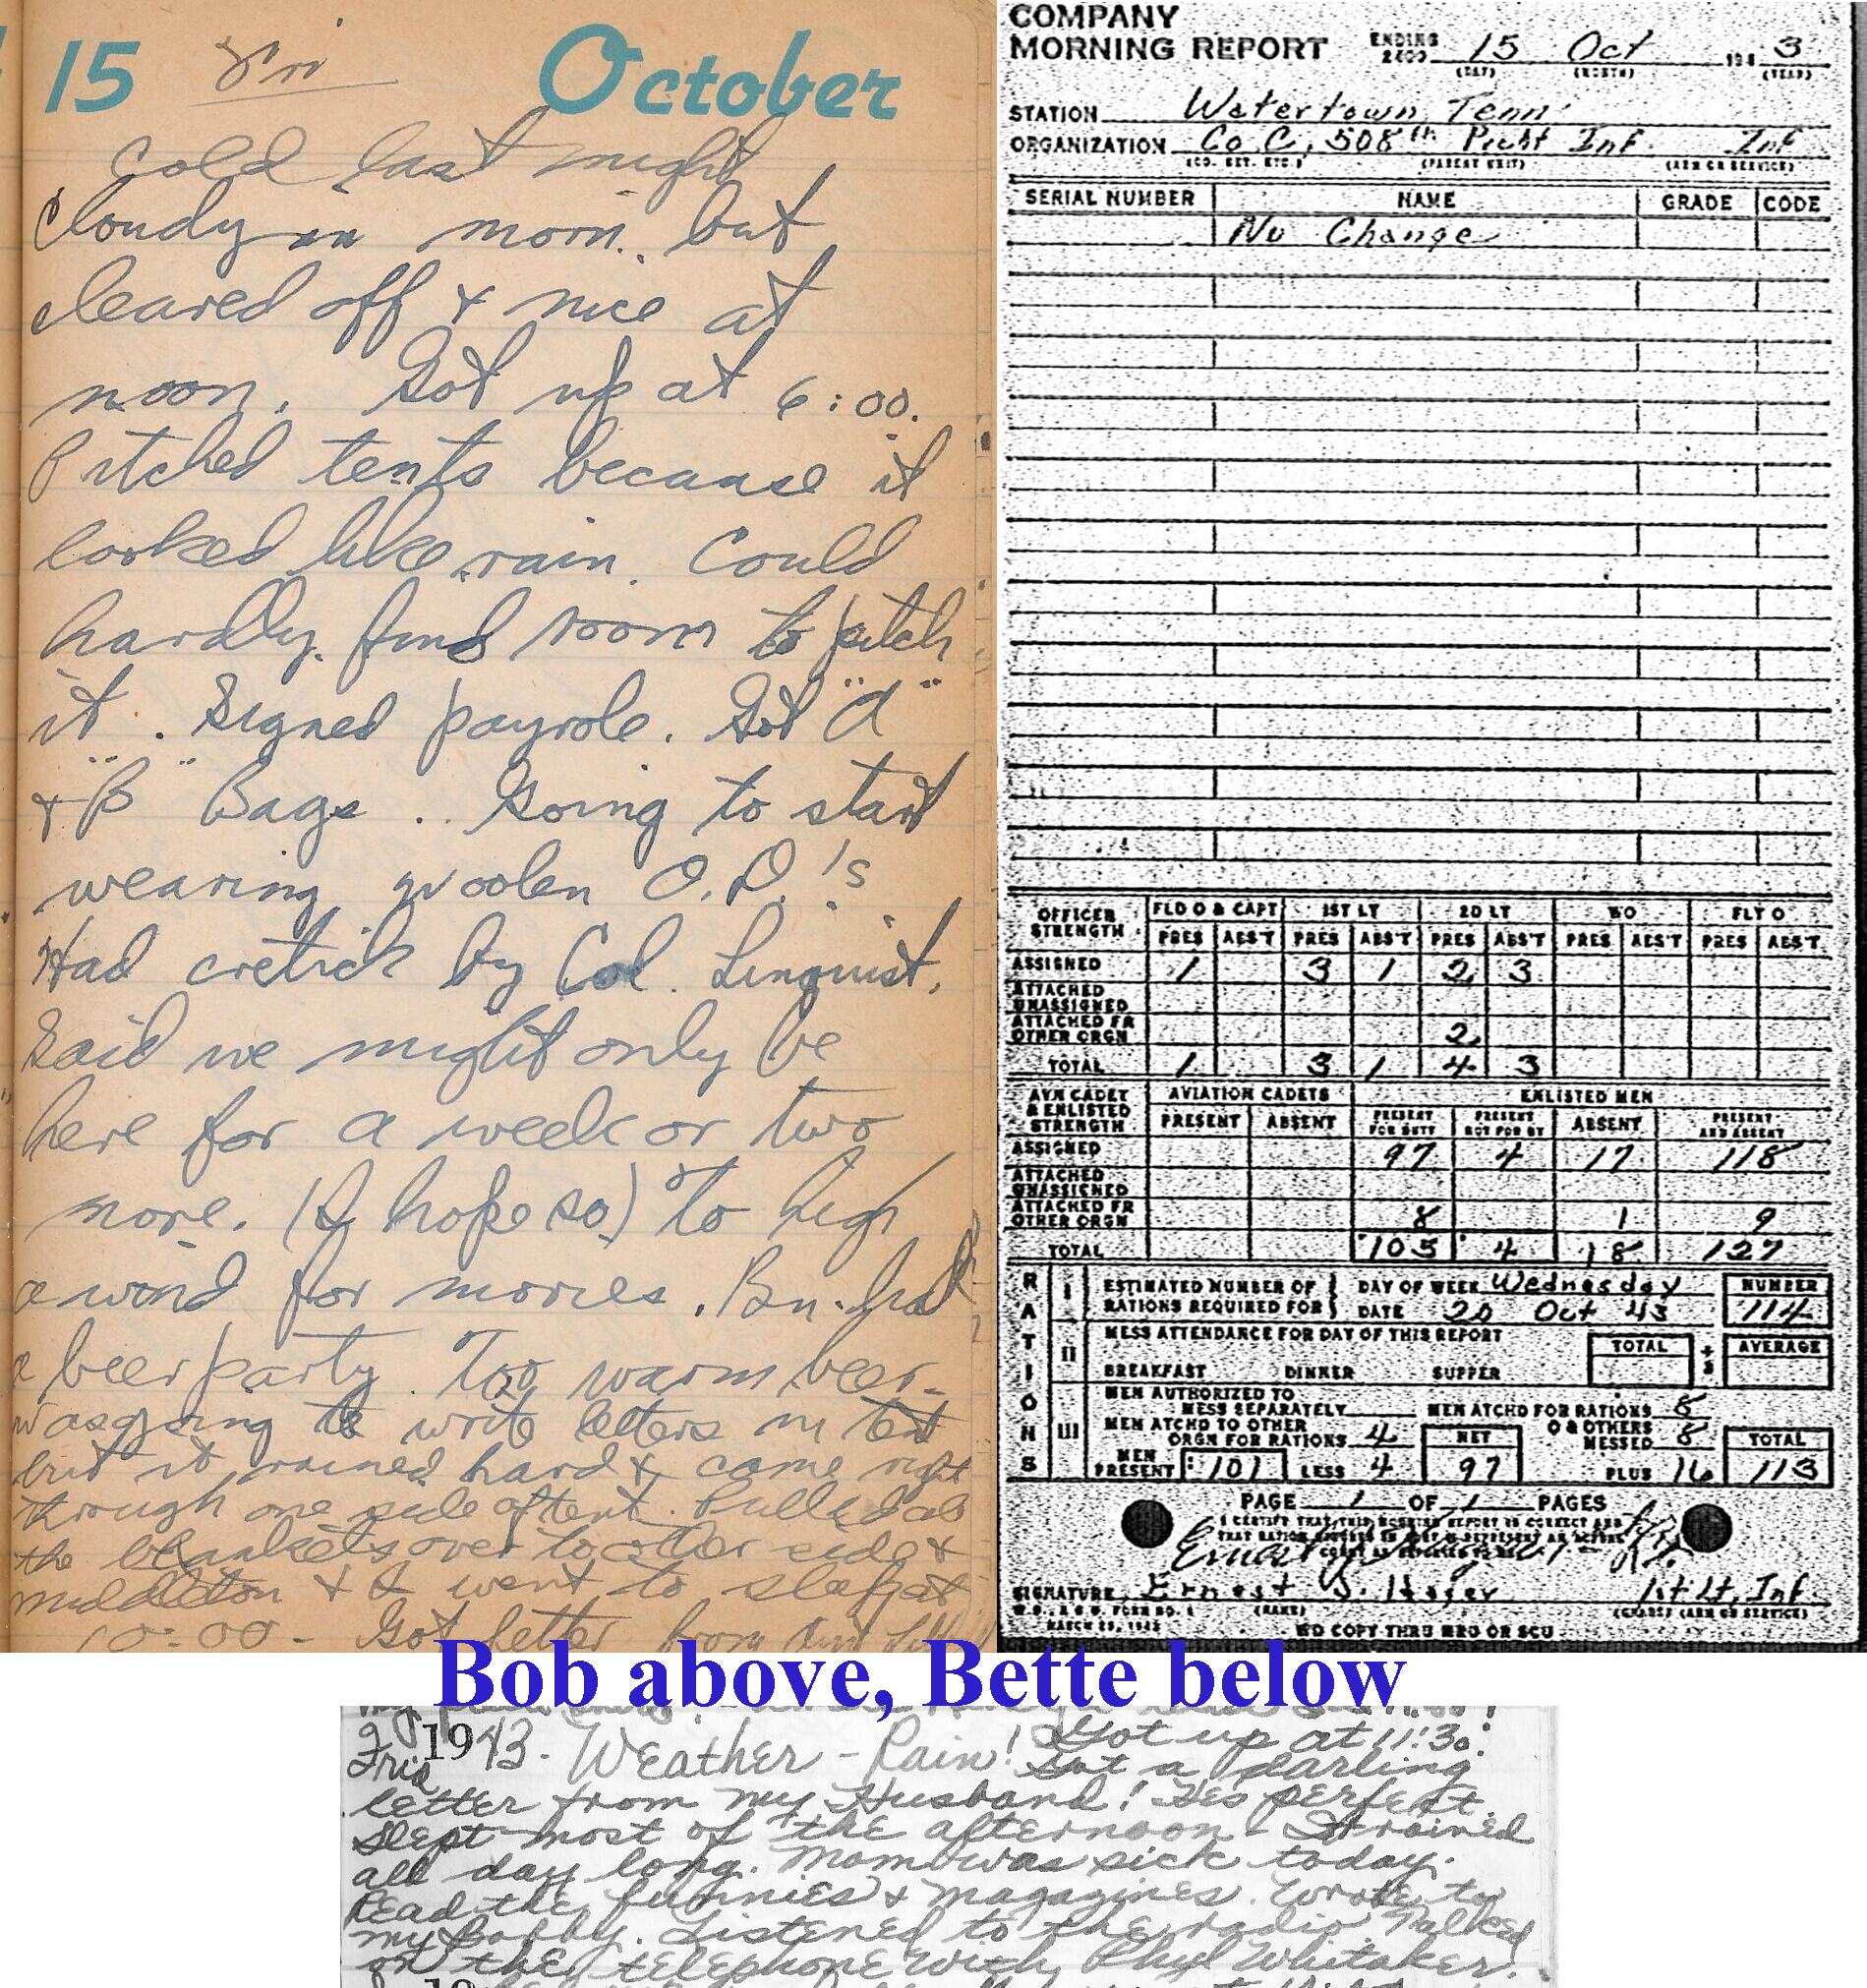 15 Fri October
Cold last night
Cloudy in morn. but
cleared off & nice at
noon. Got up at 6:00.
Pitched tents because it
looked like rain. Could
hardly find room to pitch
it. Signed payrole. Got "A"
& "B" Bags. Going to start
wearing woolen O.D.'s
Had cretick by Col. Linquist.
Said we might only be
here for a week or two
more. (I hope so) To high
a wind for movies. Bn. had
a beer party. Too warm beer.
was going to write letters in tent
but it rained hard & came right
through one side of tent. Pulled all
the blankets over to other side &
Middleton & I went to sleep at
10:00 - Got letter from
COMPANY
MORNING REPORT ENDING 2400 15 Oct 194 3
(DAY) (MONTH) (YEAR)
STATION Watertown, Tenn
ORGANIZATION Co C, 508th Prcht Inf. Inf
(CO. DET. ETC.) (PARENT UNIT) (ARM OR SERVICE)
SERIAL NUMBER NAME GRADE CODE
No Change
OFFICER STRENGTH FLD O & CAPT 1ST LT 2D LT WO FLT O
PRES ABS'T PRES ABS'T PRES ABS'T PRES ABS'T PRES ABS'T
ASSIGNED 1 3 1 2 3
ATTACHED UNASSIGNED
ATTACHED FR OTHER ORGN 2
TOTAL 1 3 1 4 3
AVN CADET & ENLISTED STRENGTH AVIATION CADETS ENLISTED MEN
PRESENT ABSENT PRESENT FOR DUTY PRESENT NOT FOR DY ABSENT PRESENT AND ABSENT
ASSIGNED 97 4 17 118
ATTACHED UNASSIGNED
ATTACHED FR OTHER ORGN 8 1 9
TOTAL 105 4 18 127
RATIONS
I ESTIMATED NUMBER OF RATIONS REQUIRED FOR DAY OF WEEK Wednesday NUMBER
DATE 20 Oct 43 114
II MESS ATTENDANCE FOR DAY OF THIS REPORT TOTAL ÷ 3 AVERAGE
BREAKFAST DINNER SUPPER
III MEN AUTHORIZED TO MESS SEPARATELY MEN ATCHD FOR RATIONS 8
MEN ATCHD TO OTHER ORGN FOR RATIONS 4 NET O & OTHERS MESSED 8 TOTAL
MEN PRESENT 101 LESS 4 97 PLUS 16 113
PAGE 1 OF 1 PAGES
I CERTIFY THAT THIS MORNING REPORT IS CORRECT AND
SIGNATURE Ernest J. Hager 1st Lt, Inf.
W.D., A.G.O. FORM NO. 1 (NAME) (GRADE) (ARM OR SERVICE)
MARCH 29, 1943 NO COPY THRU MRU OR SCU
Bob above, Bette below
1943. Weather - Rain! Got up at 11:30.
Frid Got a darling
letter from my Husband! He's perfect.
Slept most of the afternoon - It rained
all day long. Mom was sick today.
Read the funnies & magazines. Wrote to
my Bobby. Listened to the radio. Talked
on the telephone with Phyl Whitaker.